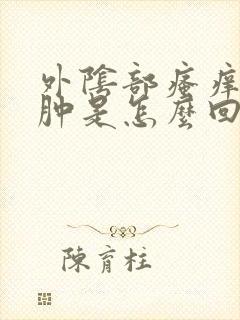 外陰部瘙癢
肿是怎麼回
陳育柱